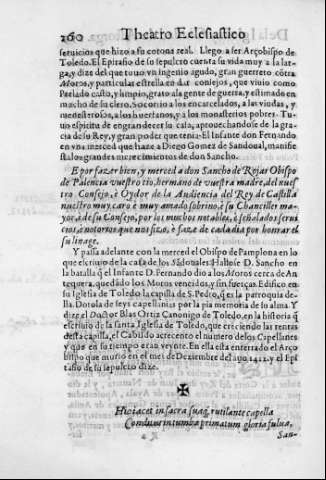 260 Theatro Eclesiastico
seruicios que hizo a su corona real. Llego a ser Arçobispo de
Toledo. El Epitafio de su sepulcro cuenta su vida muy a la lar-
ga, y dize del que tuuo vn ingenio agudo, gran guerrero cōtra
Moros, y particular estrella en dar consejos, que viuio como
Perlado casto, y limpio, grato a la gente, y estimado en
mucho de su clero. Socorrio a los encarcelados, a las viudas, y
menesterosos, a los huerfanos, y a los monasterios pobres. Tu-
uo espiritu de engrandecer su casa, aprouechandose de la gra-
cia de su Rey, y gran poder que tenia: El Infante don Fernando
en vna merced que haze a Diego Gomez de Sandoual, manifie
sta los grandes merecimientos de don Sancho.
E por fazer bien, y merced a don Sancho de Rojas Obispo
de Palencia vuestro tio, hermano de vuestra madre, del nues
tro Consejo, è Oydor de la Audiencia del Rey de Castilla
nuestro muy caro è muy amado sobrino, è su Chanciller ma-
yor, è de su Consejo, por los muchos notables, è señalados serui
cios, è notorios que nos fizo, è faze de cada dia por honrar el
su linage.
Y passa adelante con la merced el Obispo de Pamplona en lo
que escriuio de la casa de los Sādouales: Hallose D. Sancho en
la batalla q̄ el Infante D. Fernando dio a los Moros cerca de An
tequera, quedādo los Moros vencidos, y sin fuerças. Edifico en
su Iglesia de Toledo la capilla de S. Pedro, q̄ es la parroquia de-
lla. Dotola de seys capellanias por la pia memoria de su alma. Y
dize el Doctor Blas Ortiz Canonigo de Toledo, en la historia q̄
escriuio de la santa Iglesia de Toledo, que creciendo las rentas
desta capilla, el Cabildo acrecento el numero de los Capellanes
y que en su tiempo eran veynte. En ella està enterrado el Arço
bispo que murio en el mes de Deziembre del año 1422. y el Epi
tafio de su sepulcro dize.
✠
Hic iacet in sacra suaq; rutilante capella
Conditus in tumba primatum gloria fulua,
San-